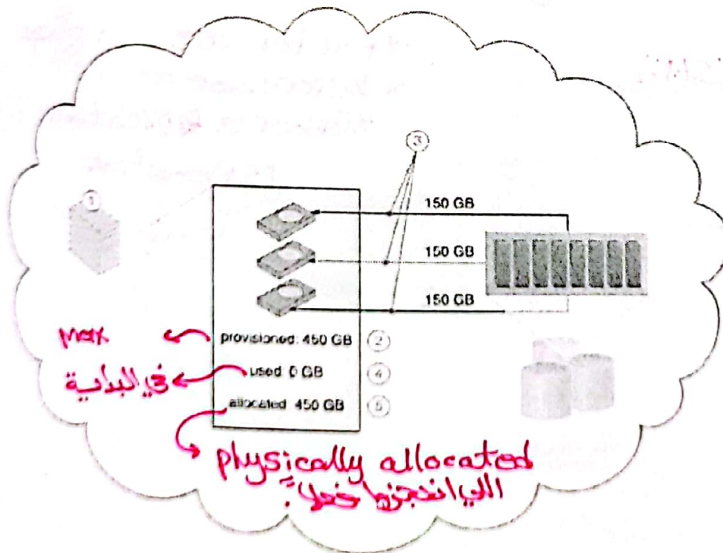 3
1
150 GB
150 GB
150 GB
max
provisioned: 450 GB
2
في البداية
used 0 GB
4
allocated 450 GB
5
physically allocated
اللي انحجزوا فعلاً